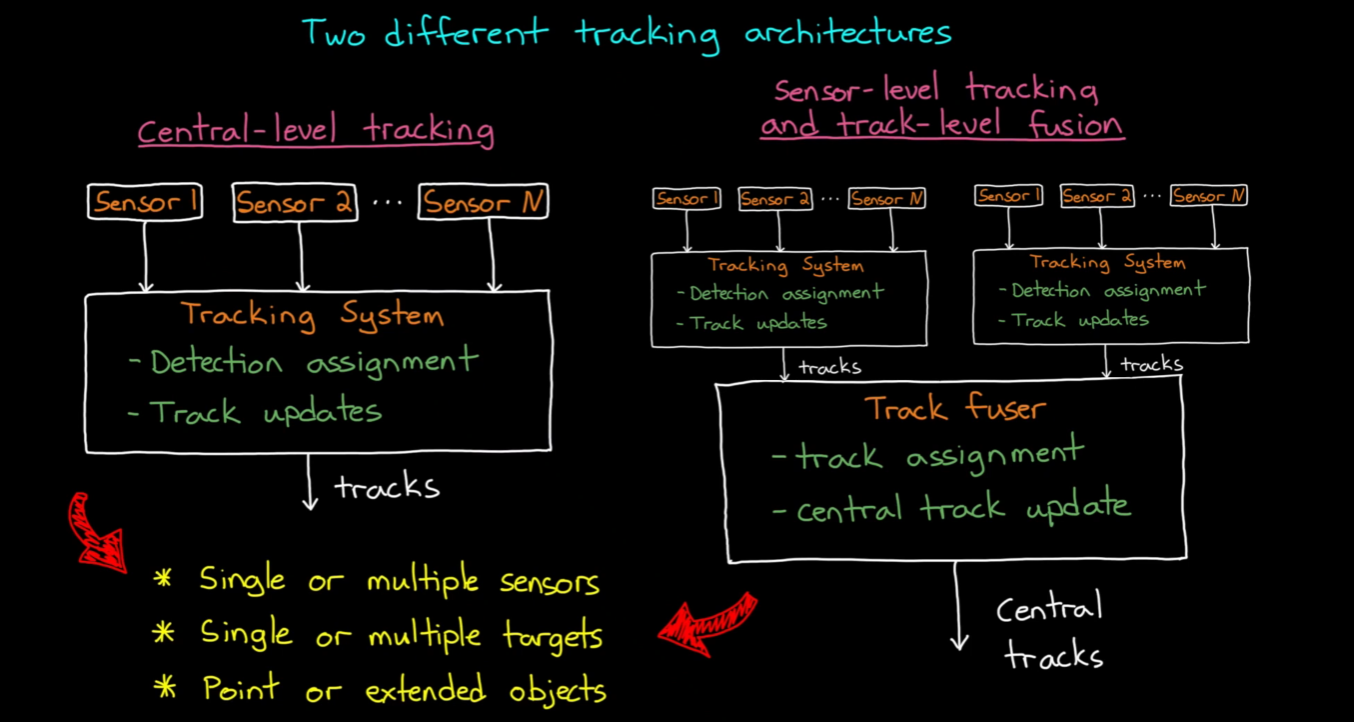 Two different tracking architectures
Central-level tracking
Sensor 1 Sensor 2 ... Sensor N
Tracking System
- Detection assignment
- Track updates
tracks
* Single or multiple sensors
* Single or multiple targets
* Point or extended objects
Sensor-level tracking
and track-level fusion
Sensor 1 Sensor 2 ... Sensor N
Tracking System
- Detection assignment
- Track updates
tracks
Sensor 1 Sensor 2 ... Sensor N
Tracking System
- Detection assignment
- Track updates
tracks
Track fuser
- track assignment
- central track update
Central
tracks